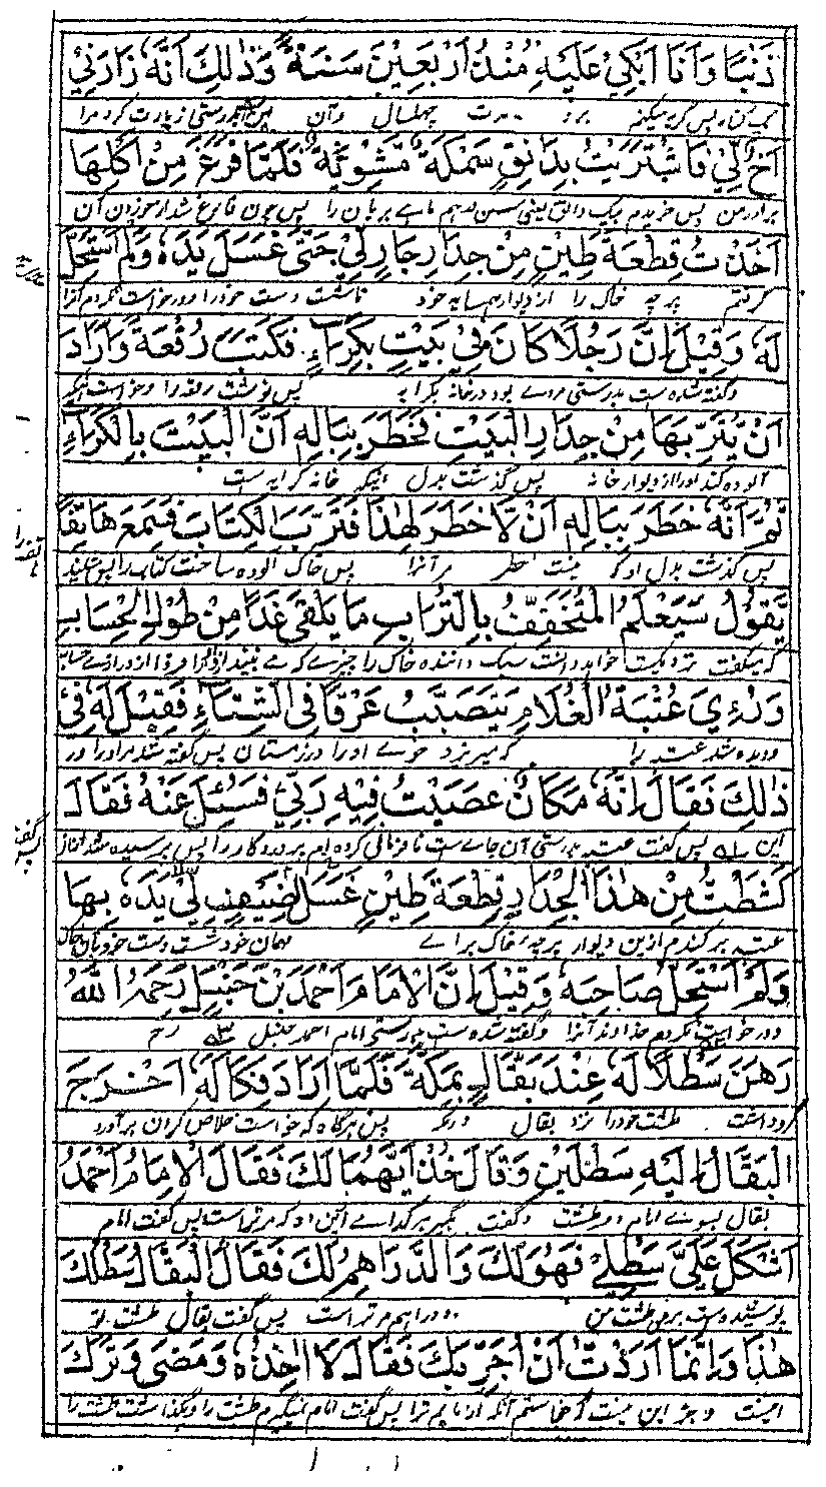 ذَنْبًا وَاَنَا اَبْكِيْ عَلَيْهِ مُنْذُ اَرْبَعِيْنَ سَنَةً وَذٰلِكَ اَنَّهٗ زَارَنِيْ
پس گریه میکنم برو مدت چهلسال وآن زیارت کرد مرا
اَخٌ لِّيْ فَاشْتَرَيْتُ بِدَانِقٍ سَمَكَةً مَّشْوِيَّةً فَلَمَّا فَرَغَ مِنْ اَكْلِهَا
برادر من پس خریدم بیک دانق یعنی درهم ماهی بریان را پس چون فارغ شد از خوردن آن
اَخَذْتُ قِطْعَةَ طِيْنٍ مِنْ جِدَارِ جَارٍ لِّيْ حَتّٰى غَسَلَ يَدَهٗ وَلَمْ اَسْتَحِلَّ
گرفتم پرچه خاک را از دیوار همسایه خود تا شست دست خود را ودرخواست نکردم
لَهٗ وَقِيْلَ اِنَّ رَجُلًا كَانَ فِيْ بَيْتٍ بِكِرَاءٍ فَكَتَبَ رُقْعَةً وَاَرَادَ
وگفته شده است بدرستی مردے بود درخانه بکرایه پس نوشت رقعه را وخواست
اَنْ يُّتَرِّبَهَا مِنْ جِدَارِ الْبَيْتِ فَخَطَرَ بِبَالِهٖ اَنَّ الْبَيْتَ بِالْكِرَاءِ
آلوده کند اورا از دیوار خانه پس گذشت بدل اینکه خانه کرایه است
ثُمَّ اَنَّهٗ خَطَرَ بِبَالِهٖ اَنْ لَّا خَطَرَ لِهٰذَا فَتَرَّبَ الْكِتَابَ فَسَمِعَ هَاتِفًا
پس گذشت بدل او که نیست خطر مر آنرا پس خاک آلوده ساخت کتاب را پس شنید
يَّقُوْلُ سَيَعْلَمُ الْمُتَخَفِّفُ بِالتُّرَابِ مَا يَلْقٰى غَدًا مِنْ طُوْلِ الْحِسَابِ
که میگفت نزدیکست خواهد دانست سبک داننده خاک را چیزے که مے بیند فردا از درازے حساب
وَرُءِيَ عُتْبَةُ الْغُلَامِ يَتَصَبَّبُ عَرَقًا فِي الشِّتَاءِ فَقِيْلَ لَهٗ فِيْ
ودیده شد عتبه را که میریزد خوے اورا در زمستان پس گفته شد مر اورا در
ذٰلِكَ فَقَالَ اِنَّهٗ مَكَانٌ عَصَيْتُ فِيْهِ رَبِّيْ فَسُئِلَ عَنْهُ فَقَالَ
این پس گفت عتبه بدرستی آن جاے ست نافرمانی کرده ام پروردگار را پس پرسیده شد
كَشَطْتُ مِنْ هٰذَا الْجِدَارِ قِطْعَةَ طِيْنٍ غَسَلَ ضَيْفٌ لِّيْ يَدَهٗ بِهَا
عتبه برکندم ازین دیوار پرچه خاک براے مهمان خود شست دست خود بآن خاک
وَلَمْ اَسْتَحِلَّ صَاحِبَهٗ وَقِيْلَ اِنَّ الْاِمَامَ اَحْمَدَ بْنَ حَنْبَلٍ رَحِمَهُ اللّٰهُ
ودرخواست نکردم خداوند آنرا وگفته شده ست بدرستی امام احمد حنبل رح
رَهَنَ سَطْلًا لَهٗ عِنْدَ بَقَّالٍ بِمَكَّةَ فَلَمَّا اَرَادَ فَكَاكَهٗ اَخْرَجَ
گرو داشت طشت خود را نزد بقال درمکه پس هرگاه که خواست خلاص کردن برآورد
الْبَقَّالُ اِلَيْهِ سَطْلَيْنِ وَقَالَ خُذْ اَيَّهُمَا لَكَ فَقَالَ الْاِمَامُ اَحْمَدُ
بقال بسوے امام دو طشت وگفت بگیر هر کدامے ازین دو که مر تراست پس گفت امام
اَشْكَلَ عَلَيَّ سَطْلِيْ فَهُوَ لَكَ وَالدَّرَاهِمُ لَكَ فَقَالَ الْبَقَّالُ سَطْلُكَ
پوشیده شد برمن طشت من ودراهم مر تراست پس گفت بقال طشت تو
هٰذَا وَاِنَّمَا اَرَدْتُ اَنْ اُجَرِّبَكَ فَقَالَ لَا اٰخُذُهٗ وَمَضٰى وَتَرَكَ
اینست وجز این نیست که خواستم آنکه آزمایم ترا پس گفت امام نمیگیرم طشت را وبگذاشت طشت را